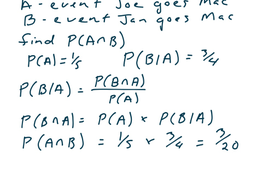 A - event Joe goes Mac
B - event Jan goes Mac
find P(A∩B)
P(A) = 1/5 P(B/A) = 3/4
P(B/A) = P(B∩A) / P(A)
P(B∩A) = P(A) × P(B/A)
P(A∩B) = 1/5 × 3/4 = 3/20